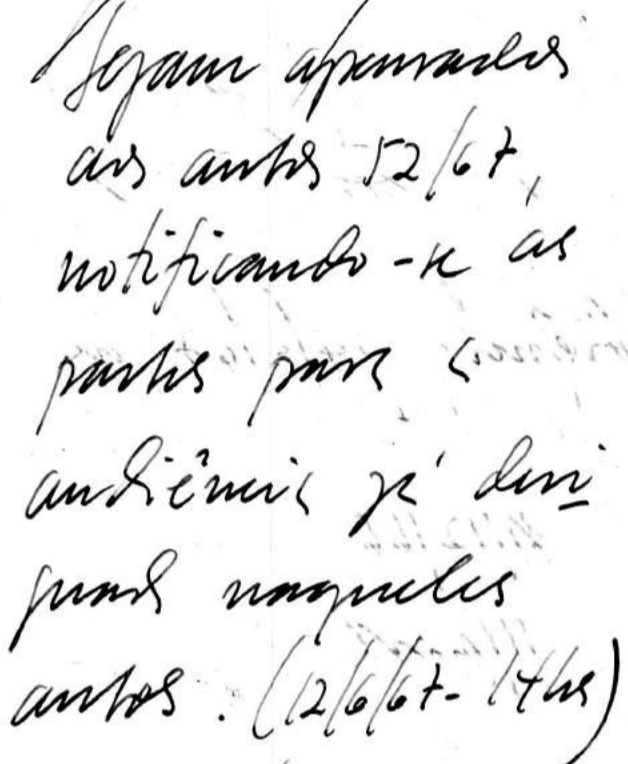 Sejam apensados
aos autos 52/67,
notificando-se as
partes para a
audiência já desi
gnada naqueles
autos. (12/6/67 - 14hs)